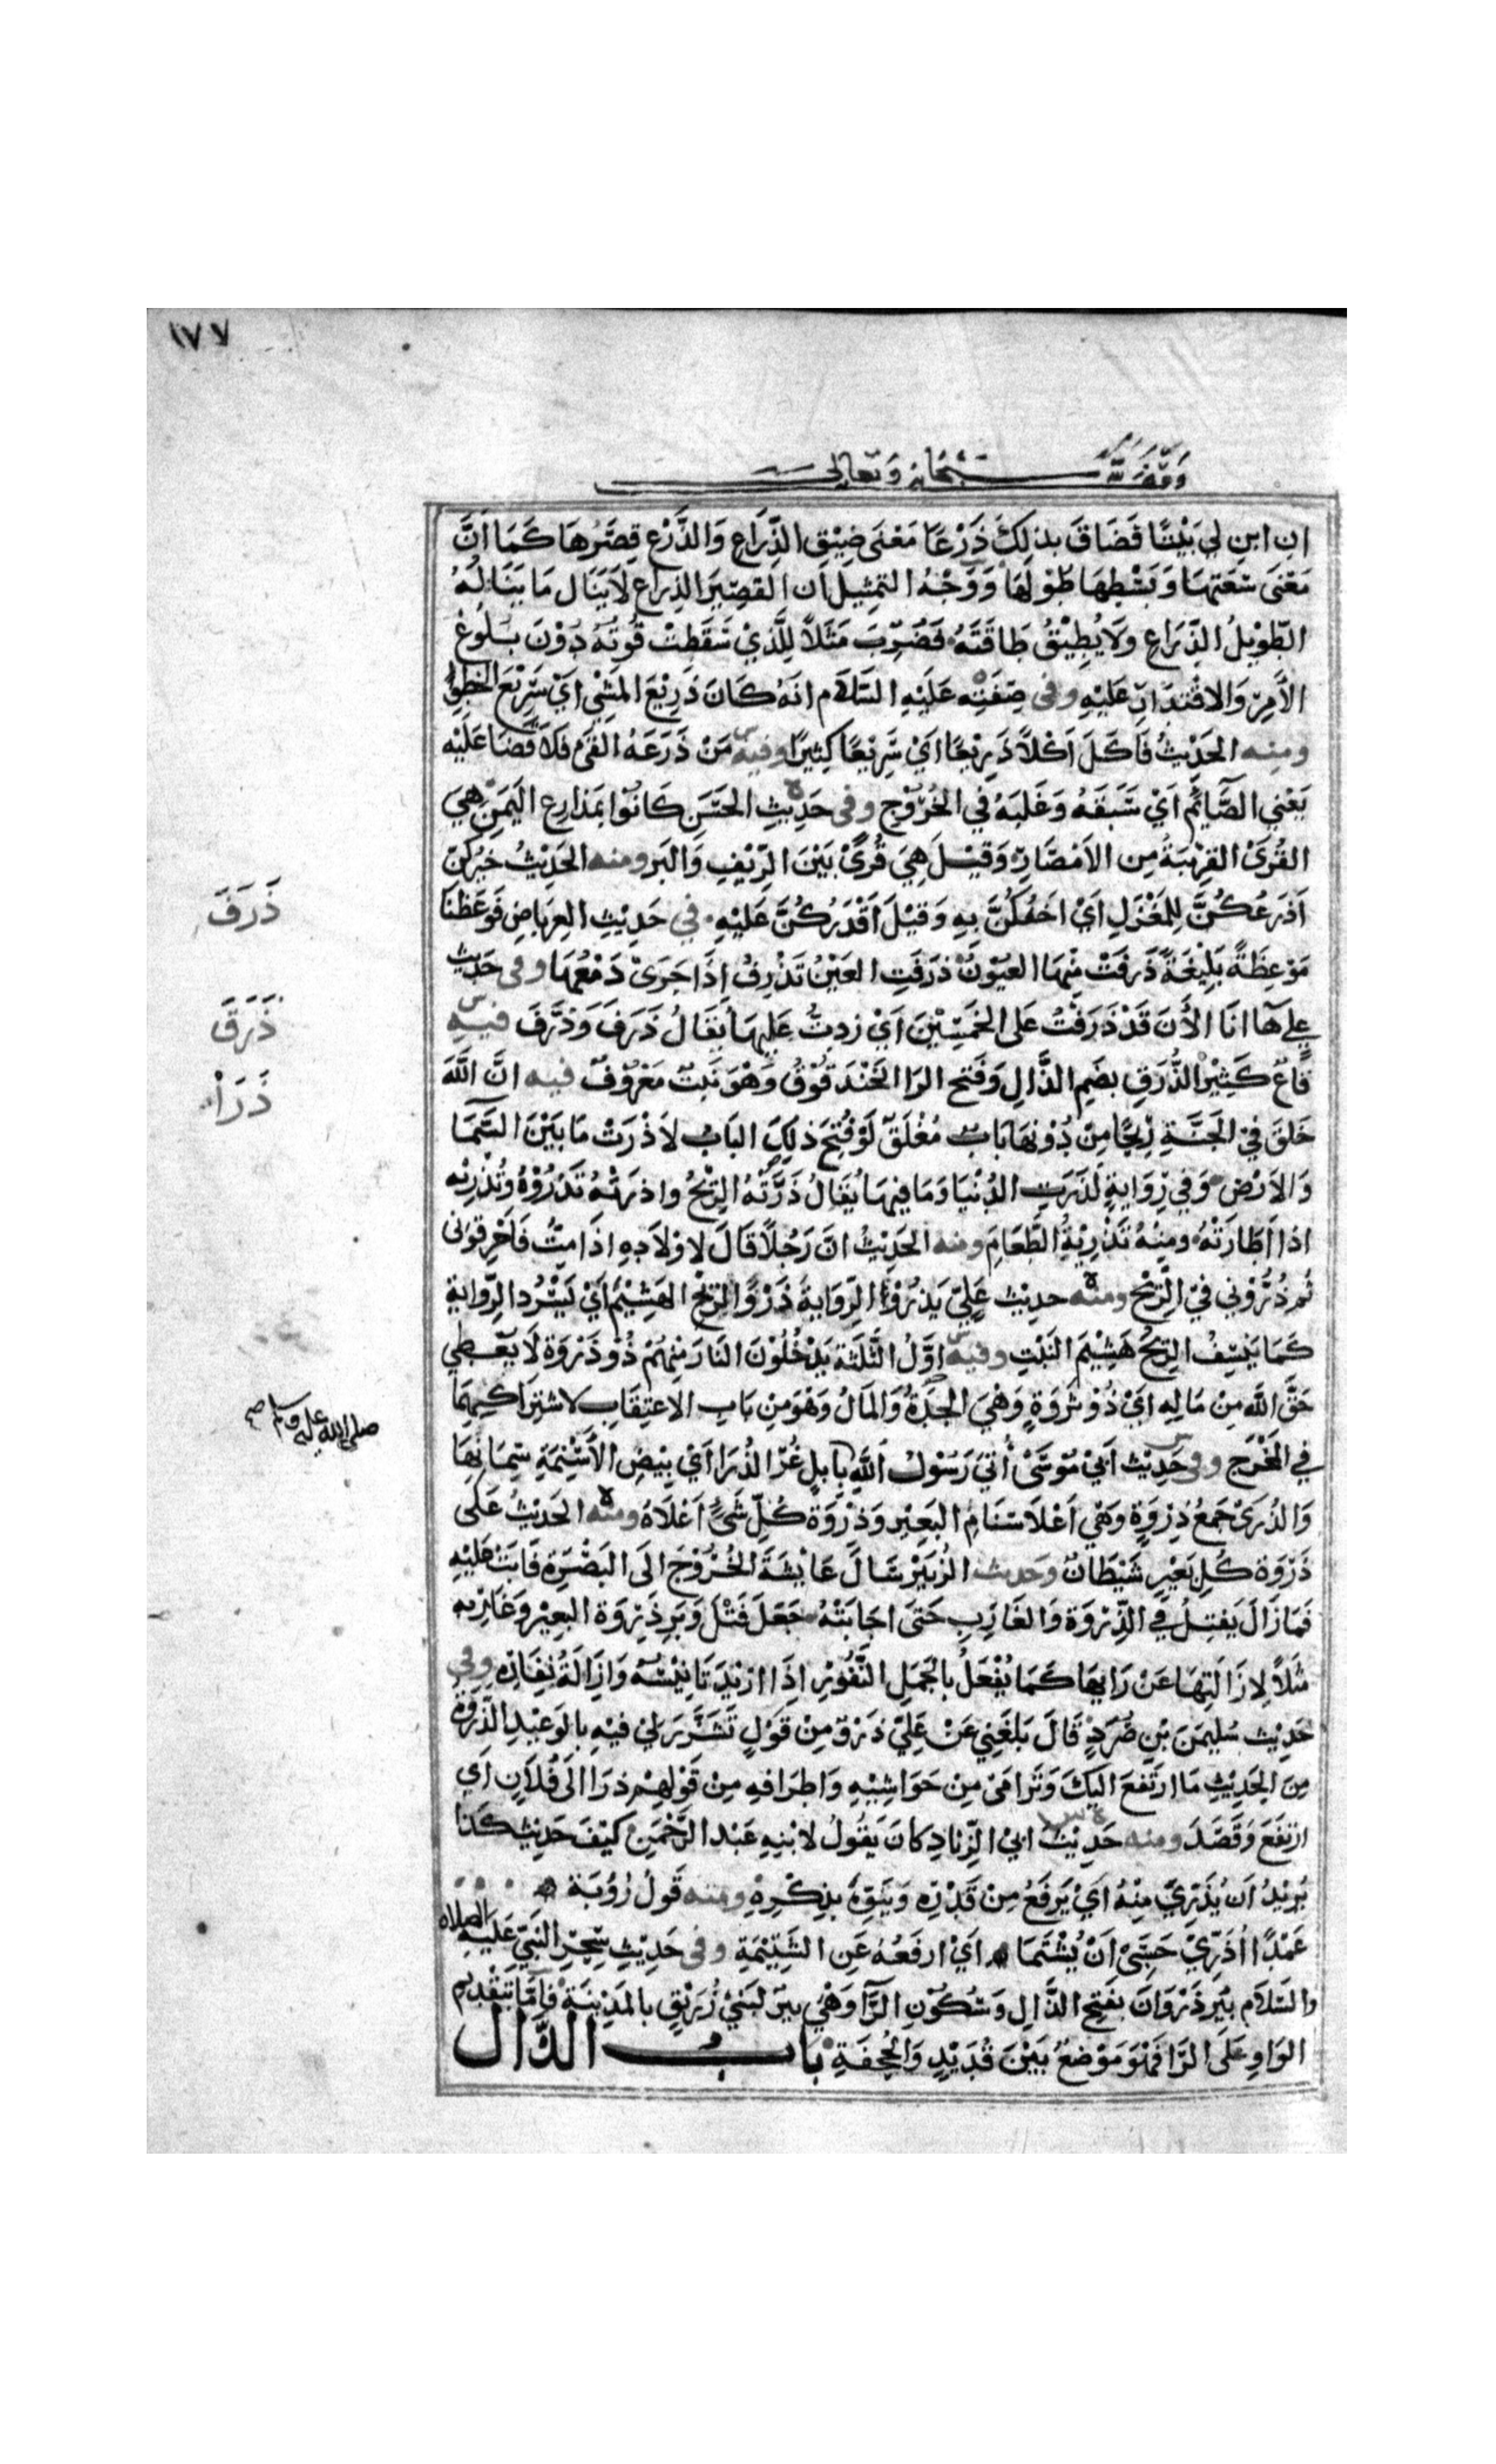 ١٧٧
وقف لله سبحانه وتعالى
ان ابن لي بَيْتًا فَضَاقَ بذلِكَ ذَرْعًا مَعْنَى ضِيْقِ الذِّرَاعِ وَالذَّرْعِ قِصَرُهَا كَمَا اَنَّ
مَعْنَى سَعَتِهَا وَبَسْطِهَا طُوْلُهَا وَوَجْهُ التمثِيل ان القصِيَر الذِراعِ لَا يَنَال مَا يَنَالُهُ
الطّوِيلُ الذِّرَاعِ وَلَا يُطِيْقُ طَاقَتَهُ فَضُرِبَ مَثَلاً لِلَّذِيْ سَقَطَتْ قُوتُهُ دُوْنَ بُلُوغِ
الاَمرِ وَالاقْتدَارِ عَلَيْهِ وفى صِفَتِه عَلَيْهِ السَّلَام انهُ كَانَ ذَرِيْعَ المَشْيِ اَيْ سَرِيْعَ الخطوِ
ومنه الحَدِيْثُ فَاَكَلَ اَكْلاً ذَرِيْعًا اَيْ سَرِيْعًا كثِيْرًا وفيه مَنْ ذَرَعَهُ القَىء فَلَا قَضَا عَلَيْه
يَعْنِي الصَّايِم اَيْ سَبَقَهُ وَغَلَبَهُ فِي الخُرُوْجِ وفى حَدِيثِ الحَسَنِ كَانُوْا بمَذَارِعِ اليَمَنِ هِيَ
القُرَى القَرِيْبَةُ مِن الاَمْصَارِ وَقيْلَ هِيَ قُرًى بَيْنَ الرِّيْفِ وَالبَر ومنه الحَدِيْثُ خَيْرُكُنَّ
اَذرَعُكُنَّ لِلمِغْزَلِ اَيْ اخَفُّكُنَّ بِهِ وَقيْلَ اَقْدَرُكُنَّ عَلَيْهِ في حَدِيْثِ العِرباضِ فَوَعَظَنَا
مَوْعِظَةً بَلِيْغَةً ذَرَفَتْ مِنْهَا العيُوْنُ ذرَفَتِ العَيْنُ تَذْرِفُ اِذَا جَرَىْ دَمْعُهَا وفى حَديث
عِلي هَا انَا الاٰنَ قَدْ ذَرَفْتُ عَلى الخَمْسِيْنَ اَيْ زِدتُ عَليهَا يُقَالُ ذَرَفَ وَذَرَّفَ فيه
قاعٌ كَثِيْرُ الذُّرَقِ بضَمِ الذَّالِ وَفَتح الرا الحَنْدَقُوْقُ وَهْوَ نَبتٌ مَعْرُوْفٌ فيه انَّ اللَّهَ
خَلَقَ فِيْ الجَنَّةِ رِيْحًا مِنْ دُوْنهَا بَابٌ مُغْلَقٌ لَوْ فُتِحَ ذلِكَ البَابُ لاَذْرَتْ مَا بَيْنَ السَّمَا
وَالاَرْضِ وَفي رِوَايةٍ لَذرَتِ الدُنْيَا وَمَا فِيهَا يُقَالُ ذَرَتْهُ الرِيْحُ واذرتْهُ تَذرُوْهُ وتُذْرِيْهِ
اذا اَطَارَتْهُ ومِنْهُ تَذْرِيَةُ الطَّعَامِ ومنه الحَدِيْثُ انَّ رَجُلاً قَالَ لاوْلَادِهِ اذَا مِتُّ فَاَحْرِقونى
ثُم ذُرُّوْنِي فِيْ الرِّيْح ومنه حديْث عَلِيّ يَذرُوْ الرِّوَايةَ ذَرْوَ الرِّيْحِ الهَشِيْمَ اَيْ يَسْرُد الرِّوايةَ
كَمَا يَنْسِفُ الرِيْحُ هَشِيْمَ النَبْتِ وفيه اوَّلُ الثَّلَثَة يَدْخُلُوْنَ النَارَ مِنهُمْ ذُوْ ذَرْوَةٍ لَا يُعْطِي
حَقَّ اللَّهِ مِنْ مَالِهِ اَيْ ذُوْ ثَرْوَةٍ وَهْيَ الجِدَةُ وَالمَالُ وَهْوَ مِنْ بَابِ الاعتِقَابِ لاشتِرَاكِهِمَا
فِي المَخْرَجِ وفى حَدِيْث اَبِيْ مُوْسَىْ اُتِيَ رَسُوْلُ اللَّهِ بِاِبلٍ غُرِّ الذُرَا اَيْ بِيْضِ الاَسْنِمَةِ سِمَانِهَا
وَالذُرَىْ جَمعُ ذِرْوَةٍ وَهْيَ اَعْلَا سَنَامِ البَعِيْرِ وَذرْوَة كُلِّ شَىْءٍ اَعْلَاهُ ومنه الحَدِيْثُ عَلَى
ذَرْوَة كُلِ بَعِيْرٍ شَيْطَانٌ وَحديث الزُبَيْرِ سَالَ عَايْشَةَ الخُرُوْجَ الَى البَصْرَةِ فَابَتْ عَلَيْهِ
فَمَا زَالَ يَفتِلُ فِي الذِّرْوَة وَالغَارِبِ حَتى اجَابَتْهُ جَعَلَ فَتْلَ وَبَرِ ذِرْوَة البعِيْر وغَارِبه
مَثَلاً لاِزَالَتِهَا عَنْ رَايِهَا كَمَا يُفْعَلُ بالجَمَلِ النَّفُوْرِ اِذَا ارِيْدَ تَانِيْسُه وَاِزَالَةُ نِفَارِه وفي
حَدِيْث سُليمَنَ بْنِ صُرَدٍ قَالَ بَلَغَنِي عَنْ عَلِيّ ذَرْوٌ مِنْ قَوْلٍ تَشَزَّرَ لِيْ فيْهِ بالوَعِيْدِ الذَّرْوُ
مِنَ الحَدِيْثِ مَا ارتَفعَ اليكَ وَتَرَامَىْ مِنْ حَوَاشِيْهِ وَاطرَافهِ مِنْ قَوْلِهِمْ ذرَا الَى فُلَانٍ اَي
ارْتفَعَ وَقَصَدَ ومنه حَدِيْث ابِيْ الزِّنادِ كانَ يَقُولُ لابْنِهِ عَبْد الرَّحْمَنِ كَيْفَ حَدِيْث كَذَا
يُرِيْدُ اَن يُذَرِيَّ مِنْهُ اَيْ يَرفَعُ مِنْ قَدْرِه وَيُنَوِّهُ بذِكْرِهِ ومنه قَولُ رُؤْبَة
عَمْدًا اُذَرِّيْ حَسَبِيْ اَنْ يُشْتَمَا اَيْ ارفَعُهُ عَنِ الشَتِيْمَةِ وفى حَدِيْثِ سِحْرِ النَبِيّ عَليهِ الصلاه
وَالسَّلَام بيْرِ ذَرْوَانَ بفَتحِ الذَّالِ وَسُكُوْنِ الرَّآ وَهْيَ بيرٌ لبَنِيْ زُرَيْقٍ بالمَدِيْنَةِ فَاِمَّا بتَقْدِيْم
الوَاوِ عَلَى الرَّا فَهْوَ مَوْضعٌ بَيْنَ قُدَيْدٍ وَالجُحفَةِ بَابُ الذَّال
ذَرَفَ
ذَرَقَ
ذَرَاْ
صلى الله عليه وسلم صح